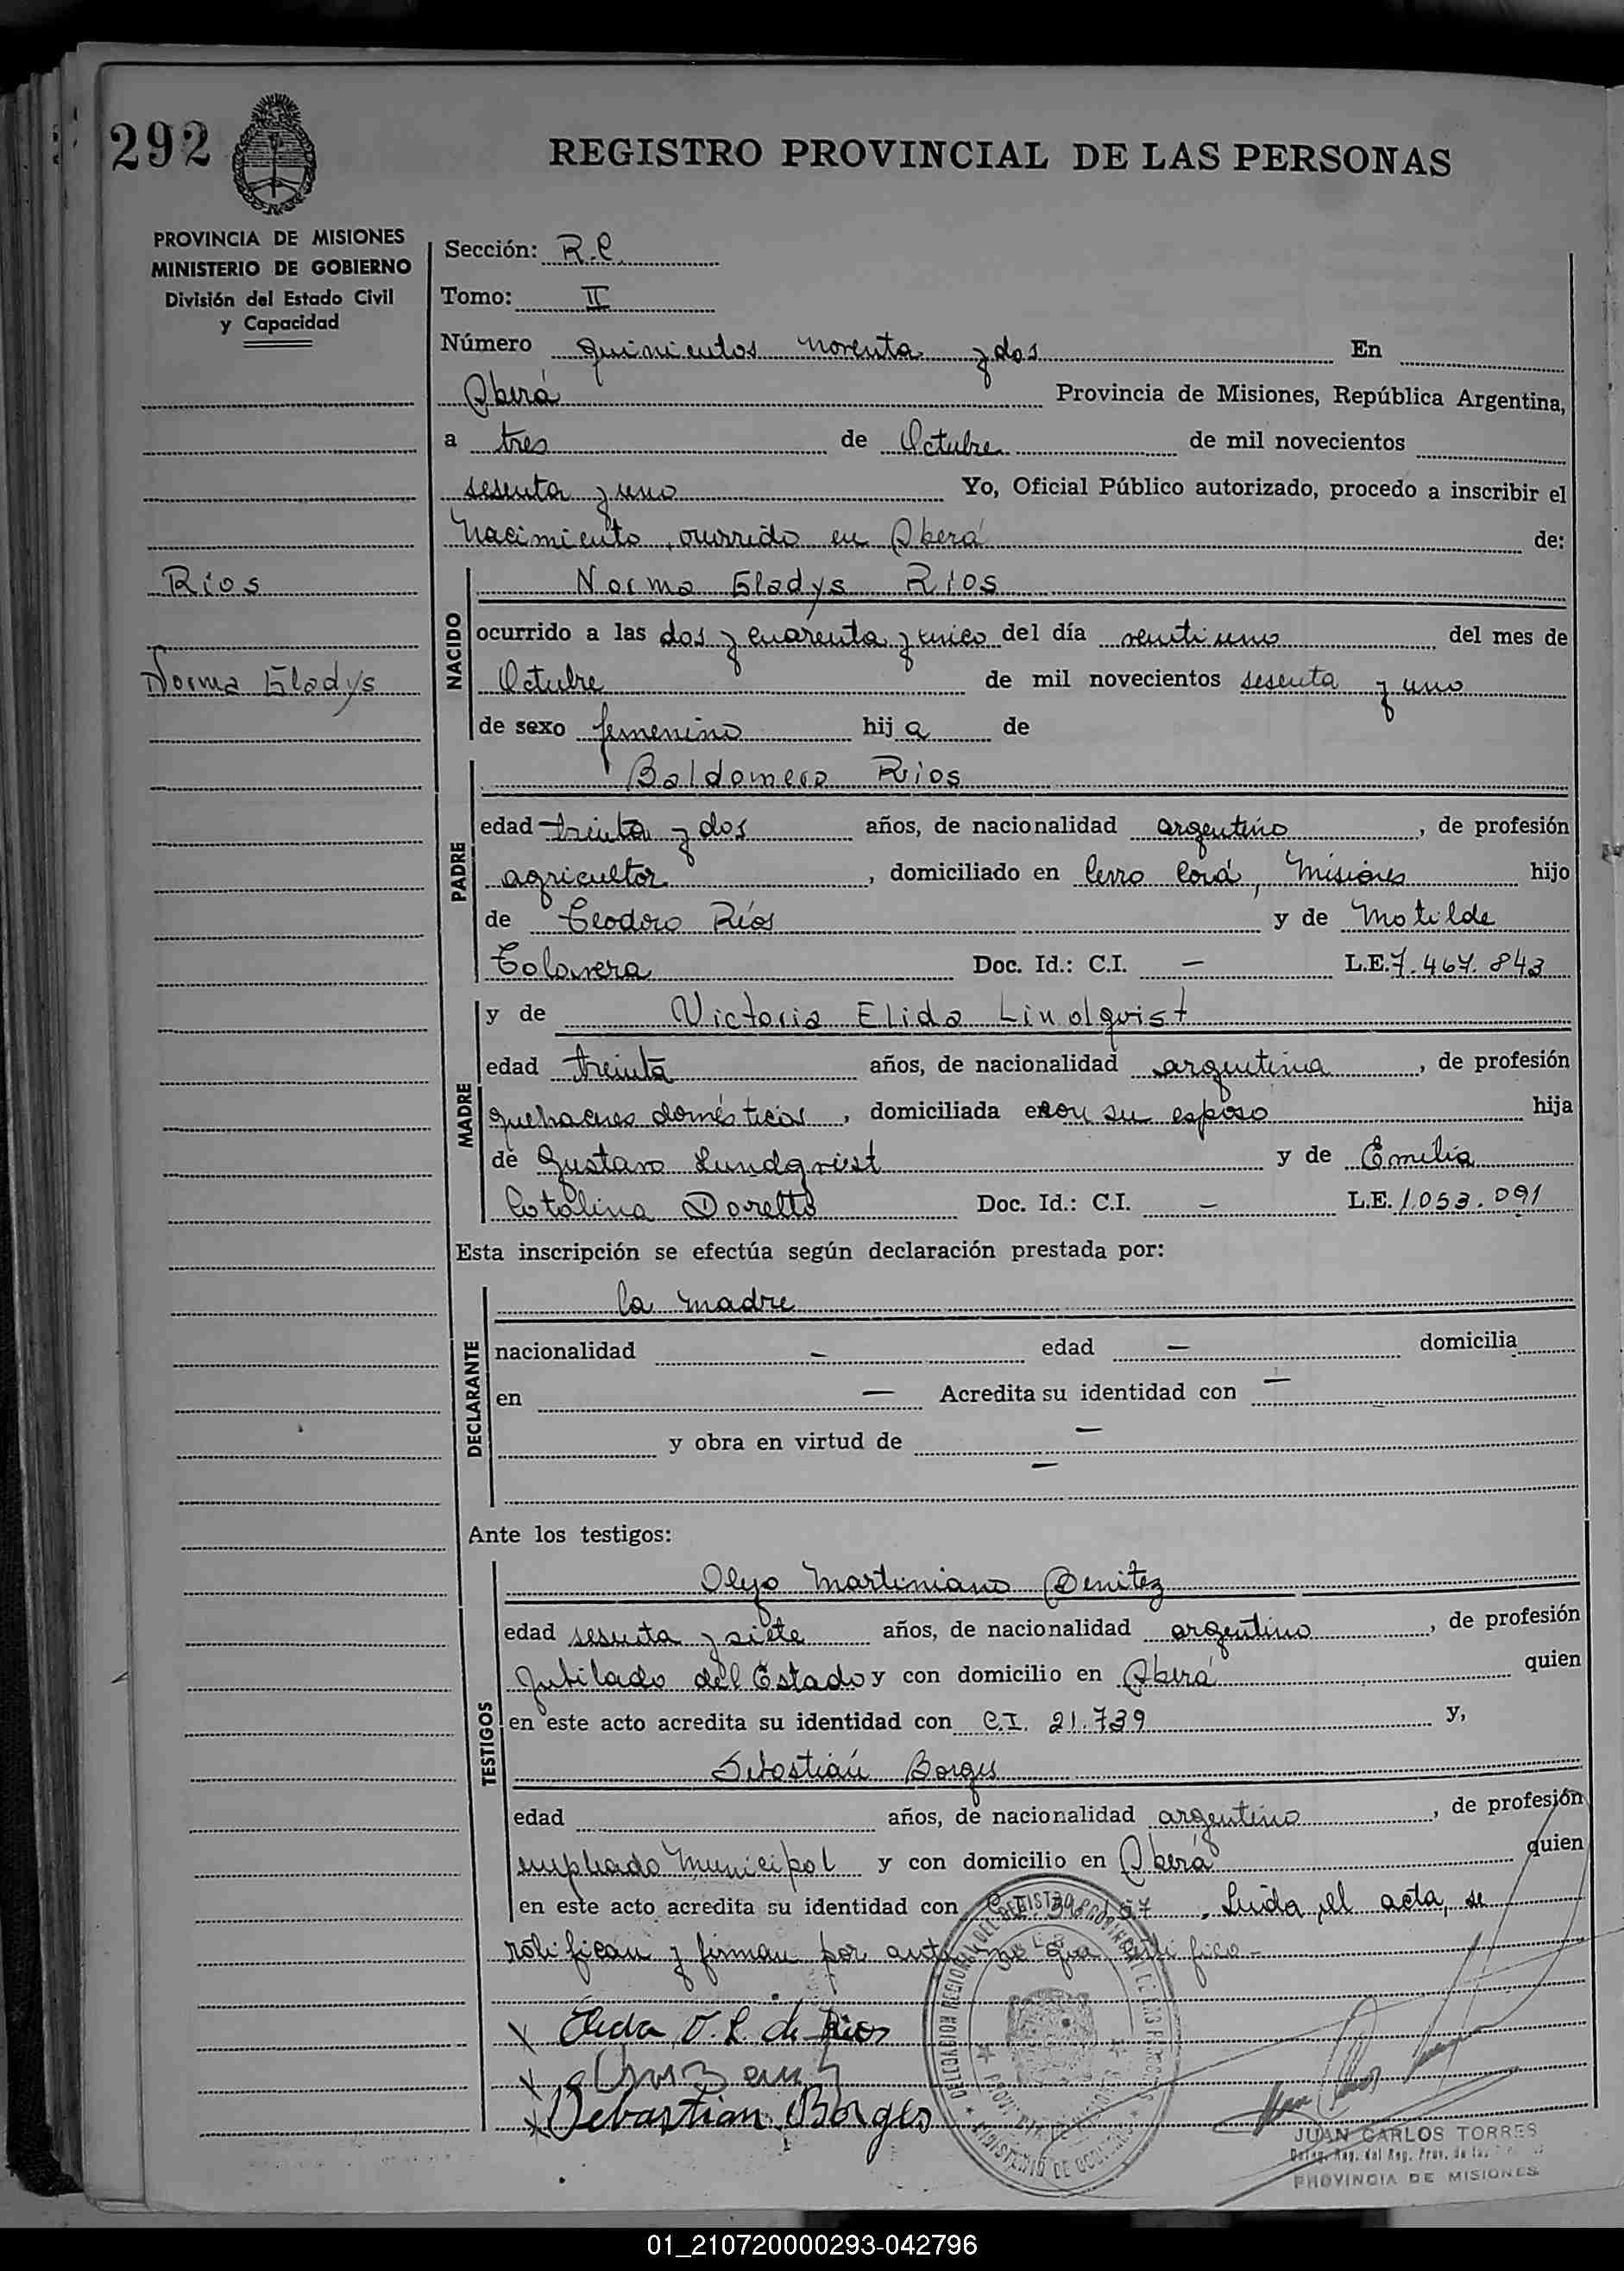 292
REGISTRO PROVINCIAL DE LAS PERSONAS
PROVINCIA DE MISIONES
MINISTERIO DE GOBIERNO
División del Estado Civil
y Capacidad
Sección: R.C.
Tomo: II
Número quinientos noventa y dos En
Oberá Provincia de Misiones, República Argentina,
a tres de Octubre de mil novecientos
sesenta y uno Yo, Oficial Público autorizado, procedo a inscribir el
Nacimiento, ocurrido en Oberá de:
Ríos
Norma Gladys
NACIDO
Norma Gladys Rios
ocurrido a las dos y cuarenta y cinco del día veintiuno del mes de
Octubre de mil novecientos sesenta y uno
de sexo femenino hij a de
PADRE
Baldomero Rios
edad treinta y dos años, de nacionalidad argentino, de profesión
agricultor, domiciliado en Cerro Corá, Misiones hijo
de Teodoro Ríos y de Matilde
Talavera Doc. Id.: C.I. — L.E. 7.467.843
MADRE
y de Victoria Elida Lindquist
edad treinta años, de nacionalidad argentina, de profesión
quehaceres domésticos, domiciliada en con su esposo hija
de Gustavo Lundqvist y de Emilia
Catalina Doretto Doc. Id.: C.I. — L.E. 1.053.091
Esta inscripción se efectúa según declaración prestada por:
DECLARANTE
la madre
nacionalidad — edad — domicilia
en — Acredita su identidad con —
y obra en virtud de —
—
Ante los testigos:
TESTIGOS
Olejo Martiniano Benitez
edad sesenta y siete años, de nacionalidad argentino, de profesión
Jubilado del Estado y con domicilio en Oberá quien
en este acto acredita su identidad con C.I. 21.739 y,
Sebastián Borges
edad años, de nacionalidad argentino, de profesión
empleado Municipal y con domicilio en Oberá quien
en este acto acredita su identidad con C.I. . Leída el acta, se
ratifican y firman por ante mi que certifico -
Elida V. L. de Rios
Sebastian Borges
JUAN CARLOS TORRES
Deleg. Reg. del Reg. Prov. de las
PROVINCIA DE MISIONES
01_210720000293-042796